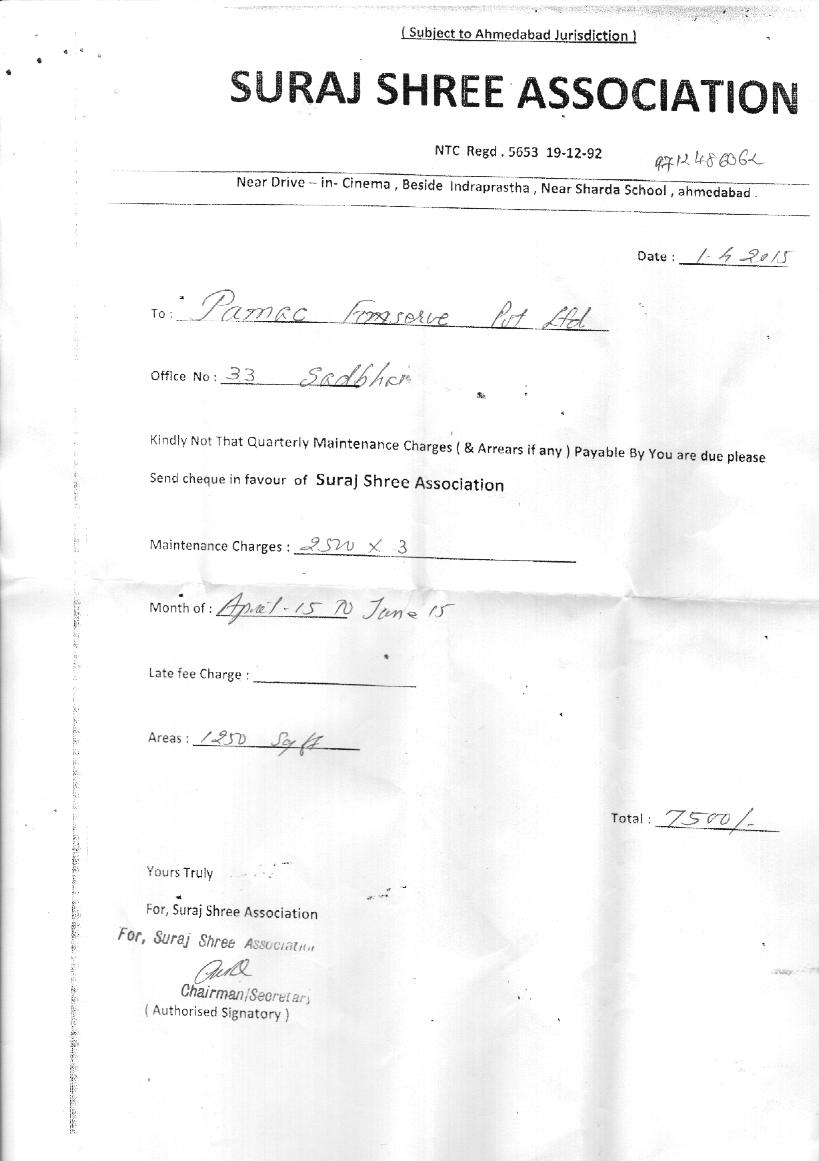 ( Subject to Ahmedabad Jurisdiction )
SURAJ SHREE ASSOCIATION
NTC Regd . 5653 19-12-92 9712486062
Near Drive – in- Cinema , Beside Indraprastha , Near Sharda School , ahmedabad .
Date : 1-4 2015
To : Pamac Finserve Pvt Ltd
Office No : 33 Sadbhav
Kindly Not That Quarterly Maintenance Charges ( & Arrears if any ) Payable By You are due please
Send cheque in favour of Suraj Shree Association
Maintenance Charges : 2500 x 3
Month of : April-15 To June 15
Late fee Charge :
Areas : 1250 Sqft
Total : 7500/-
Yours Truly
For, Suraj Shree Association
For, Suraj Shree Association
Chairman/Secretary
( Authorised Signatory )